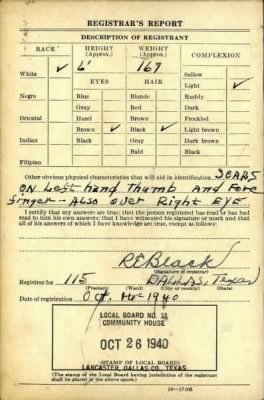 REGISTRAR'S REPORT
DESCRIPTION OF REGISTRANT
RACE HEIGHT (Approx.) WEIGHT (Approx.) COMPLEXION
White ✓ 6' 167 Sallow
EYES HAIR Light ✓
Negro Blue Blonde Ruddy
Gray Red Dark
Oriental Hazel Brown Freckled
Brown ✓ Black ✓ Light brown
Indian Black Gray Dark brown
Bald Black
Filipino
Other obvious physical characteristics that will aid in identification SCARS
ON Left hand Thumb And Fore
finger - Also over Right EYE
I certify that my answers are true; that the person registered has read or has had
read to him his own answers; that I have witnessed his signature or mark and that
all of his answers of which I have knowledge are true, except as follows:
R E Black
(Signature of registrar)
Registrar for 115 DALLAS, Texas
(Precinct) (Ward) (City or county) (State)
Date of registration Oct. 1940
LOCAL BOARD NO.
COMMUNITY HOUSE
OCT 26 1940
(STAMP OF LOCAL BOARD)
LANCASTER, DALLAS CO. TEXAS
(The stamp of the Local Board having jurisdiction of the registrant
shall be placed in the above space.)